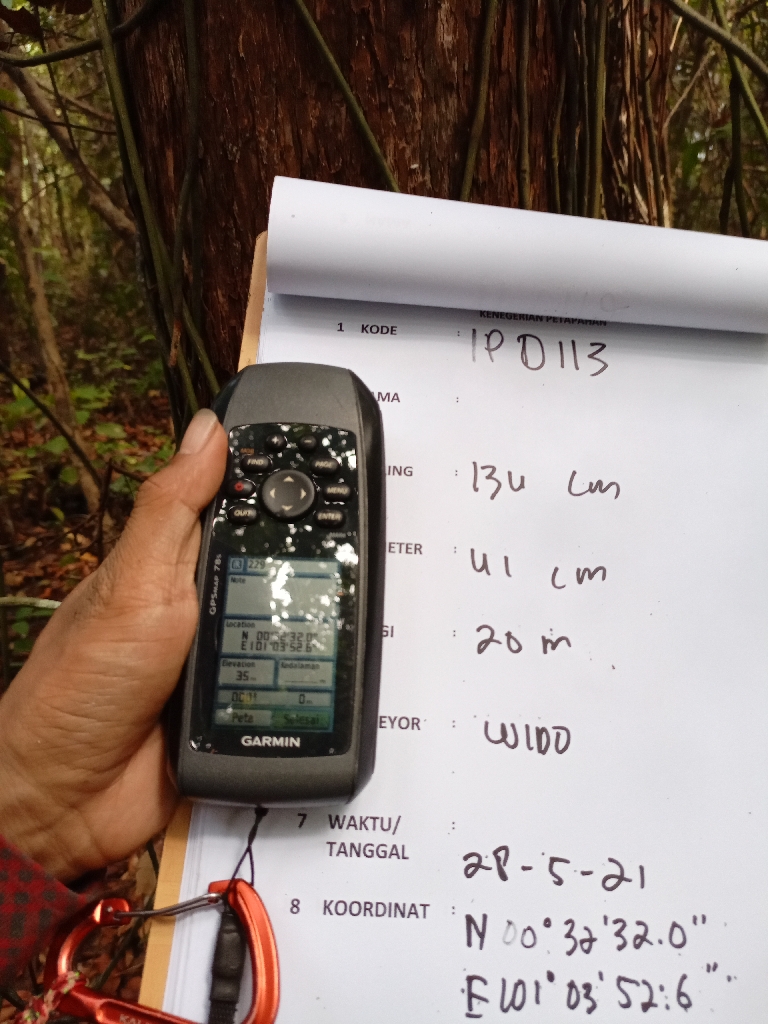 KENEGERIAN PETAPAHAN
1 KODE : IPD113
AMA :
ING : 134 cm
ETER : 41 cm
GI : 20 m
EYOR : WIDO
7 WAKTU/
TANGGAL : 28-5-21
8 KOORDINAT : N 00°32'32.0"
E 101°03'52.6"
FIND
MENU
QUIT
ENTER
GPSMAP 78s
229
Note
Location
N 00°32'32.0"
E101°03'52.6"
Elevation
Kedalaman
35 m
0001
0m
Peta
Selesai
GARMIN